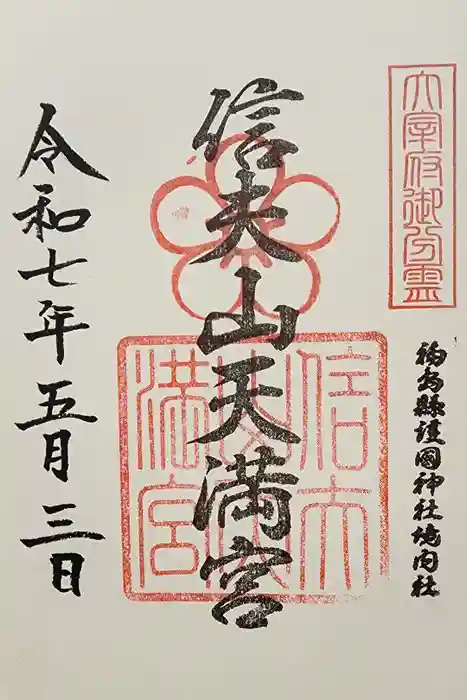 太宰府御分霊
福島縣護國神社境内社
信夫山天満宮
信夫
山天
満宮
令和七年五月三日